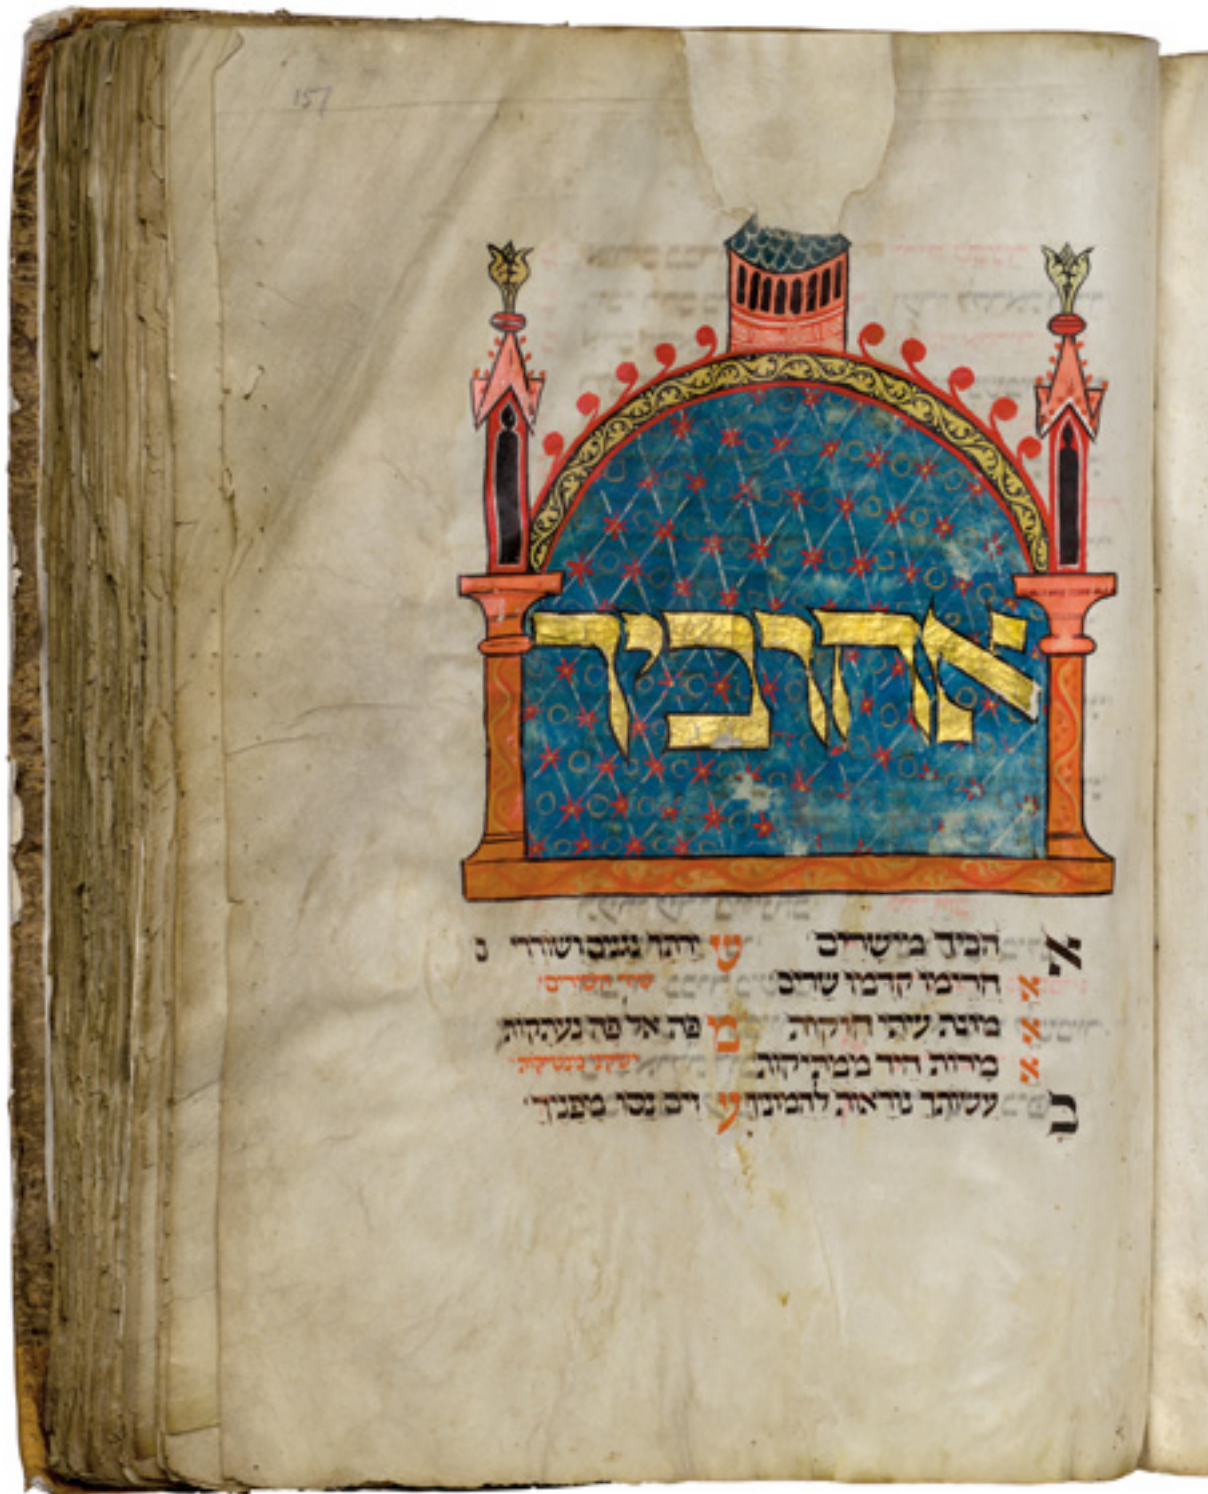 157
אהוביך
אהבוך מישרים שירתך נגנים ושוררי נ
אהרימו קדמו שרים שיר השירים
אמונת עיתי חוקות מפה אל פה נעתקות
אמרות היד ממתיקות ישקני מנשיקות
בעשותך נוראות להמוניך עוים נסו מפניך